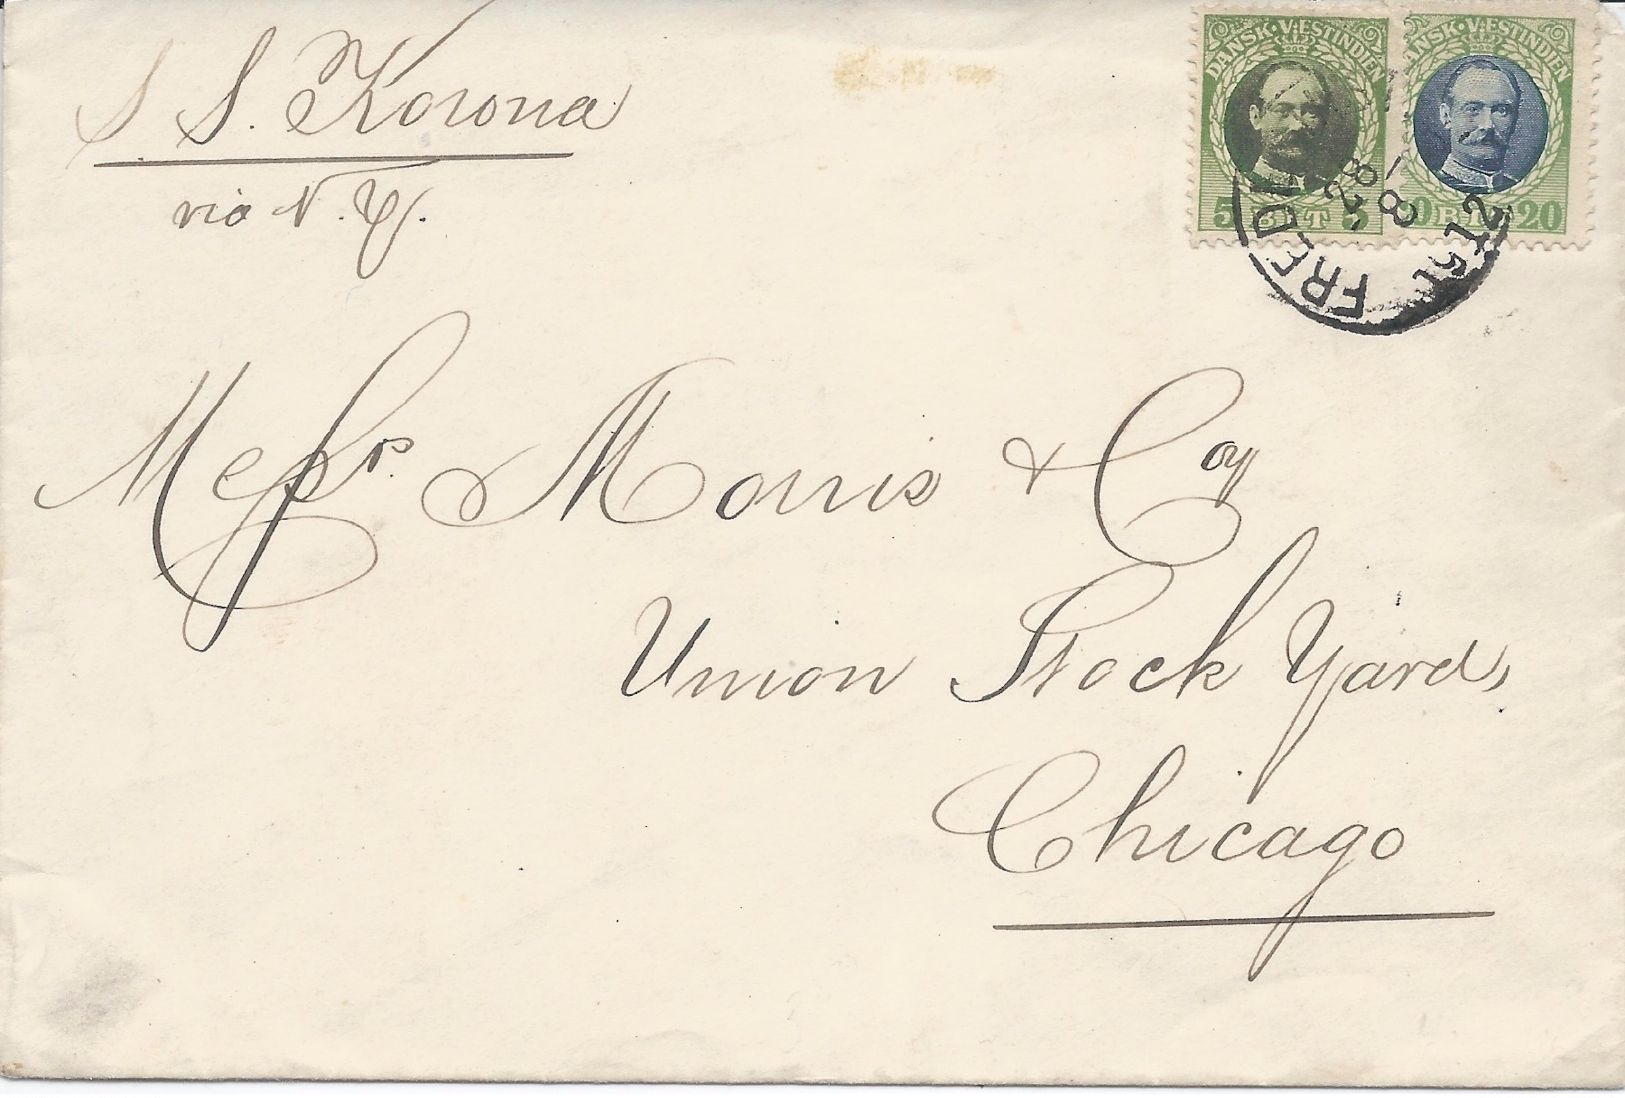 S S. Korona
via N.Y.
DANSK·VESTINDIEN
5 BIT 5
NSK·VESTINDIEN
20 BIT 20
28-8
1912
FRED
Messrs. Morris & Coy
Union Stock Yards,
Chicago